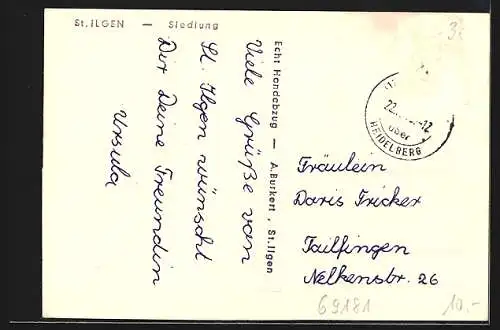 St. ILGEN — Siedlung
Viele Grüße von
St. Ilgen wünscht
Dir Deine Freundin
Ursula
Echt Handabzug — A. Burkert, St. Ilgen
über
HEIDELBERG
Fräulein
Doris Fricker
Tailfingen
Nelkenstr. 26
69181
10.-